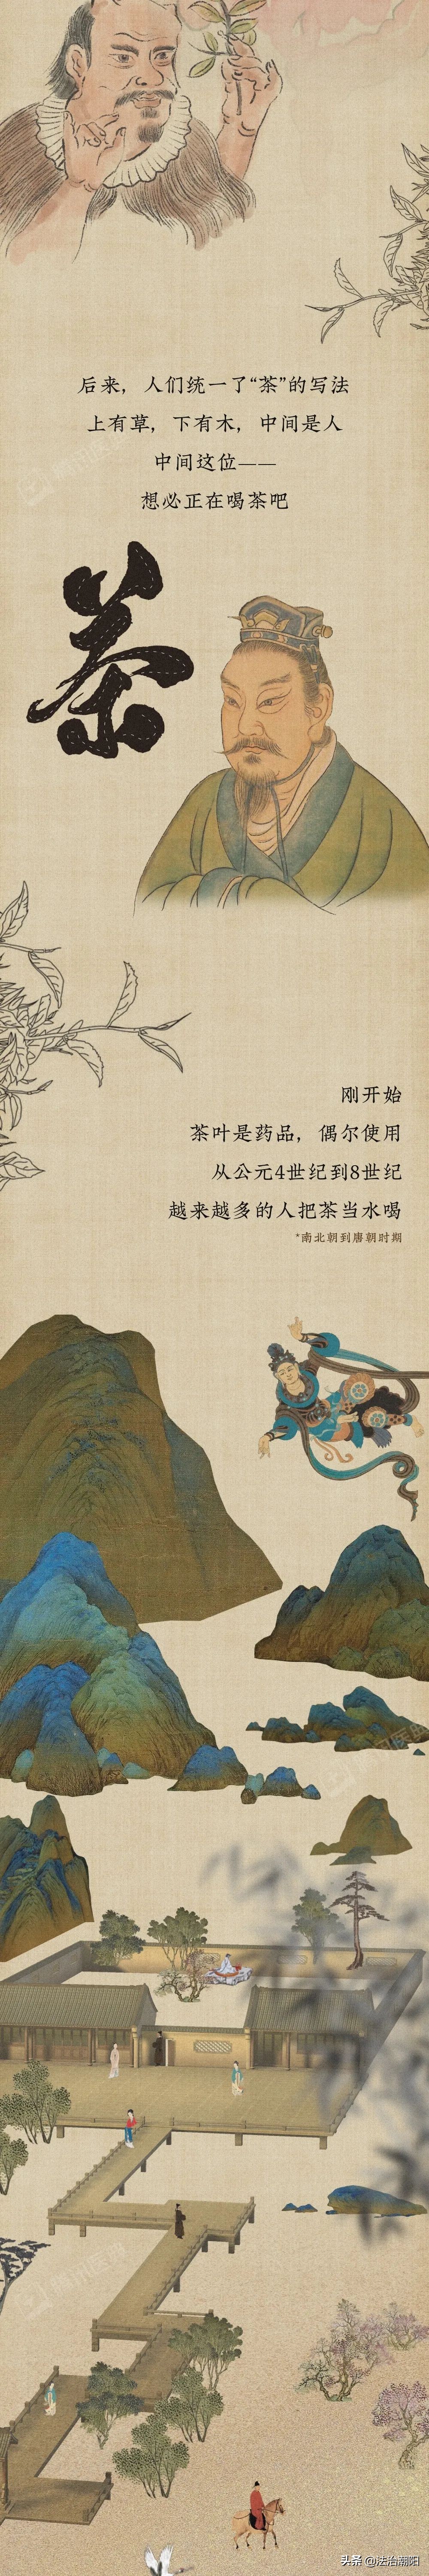 后来，人们统一了“茶”的写法
上有草，下有木，中间是人
中间这位——
想必正在喝茶吧
茶
刚开始
茶叶是药品，偶尔使用
从公元4世纪到8世纪
越来越多的人把茶当水喝
*南北朝到唐朝时期
头条 @法治潮阳